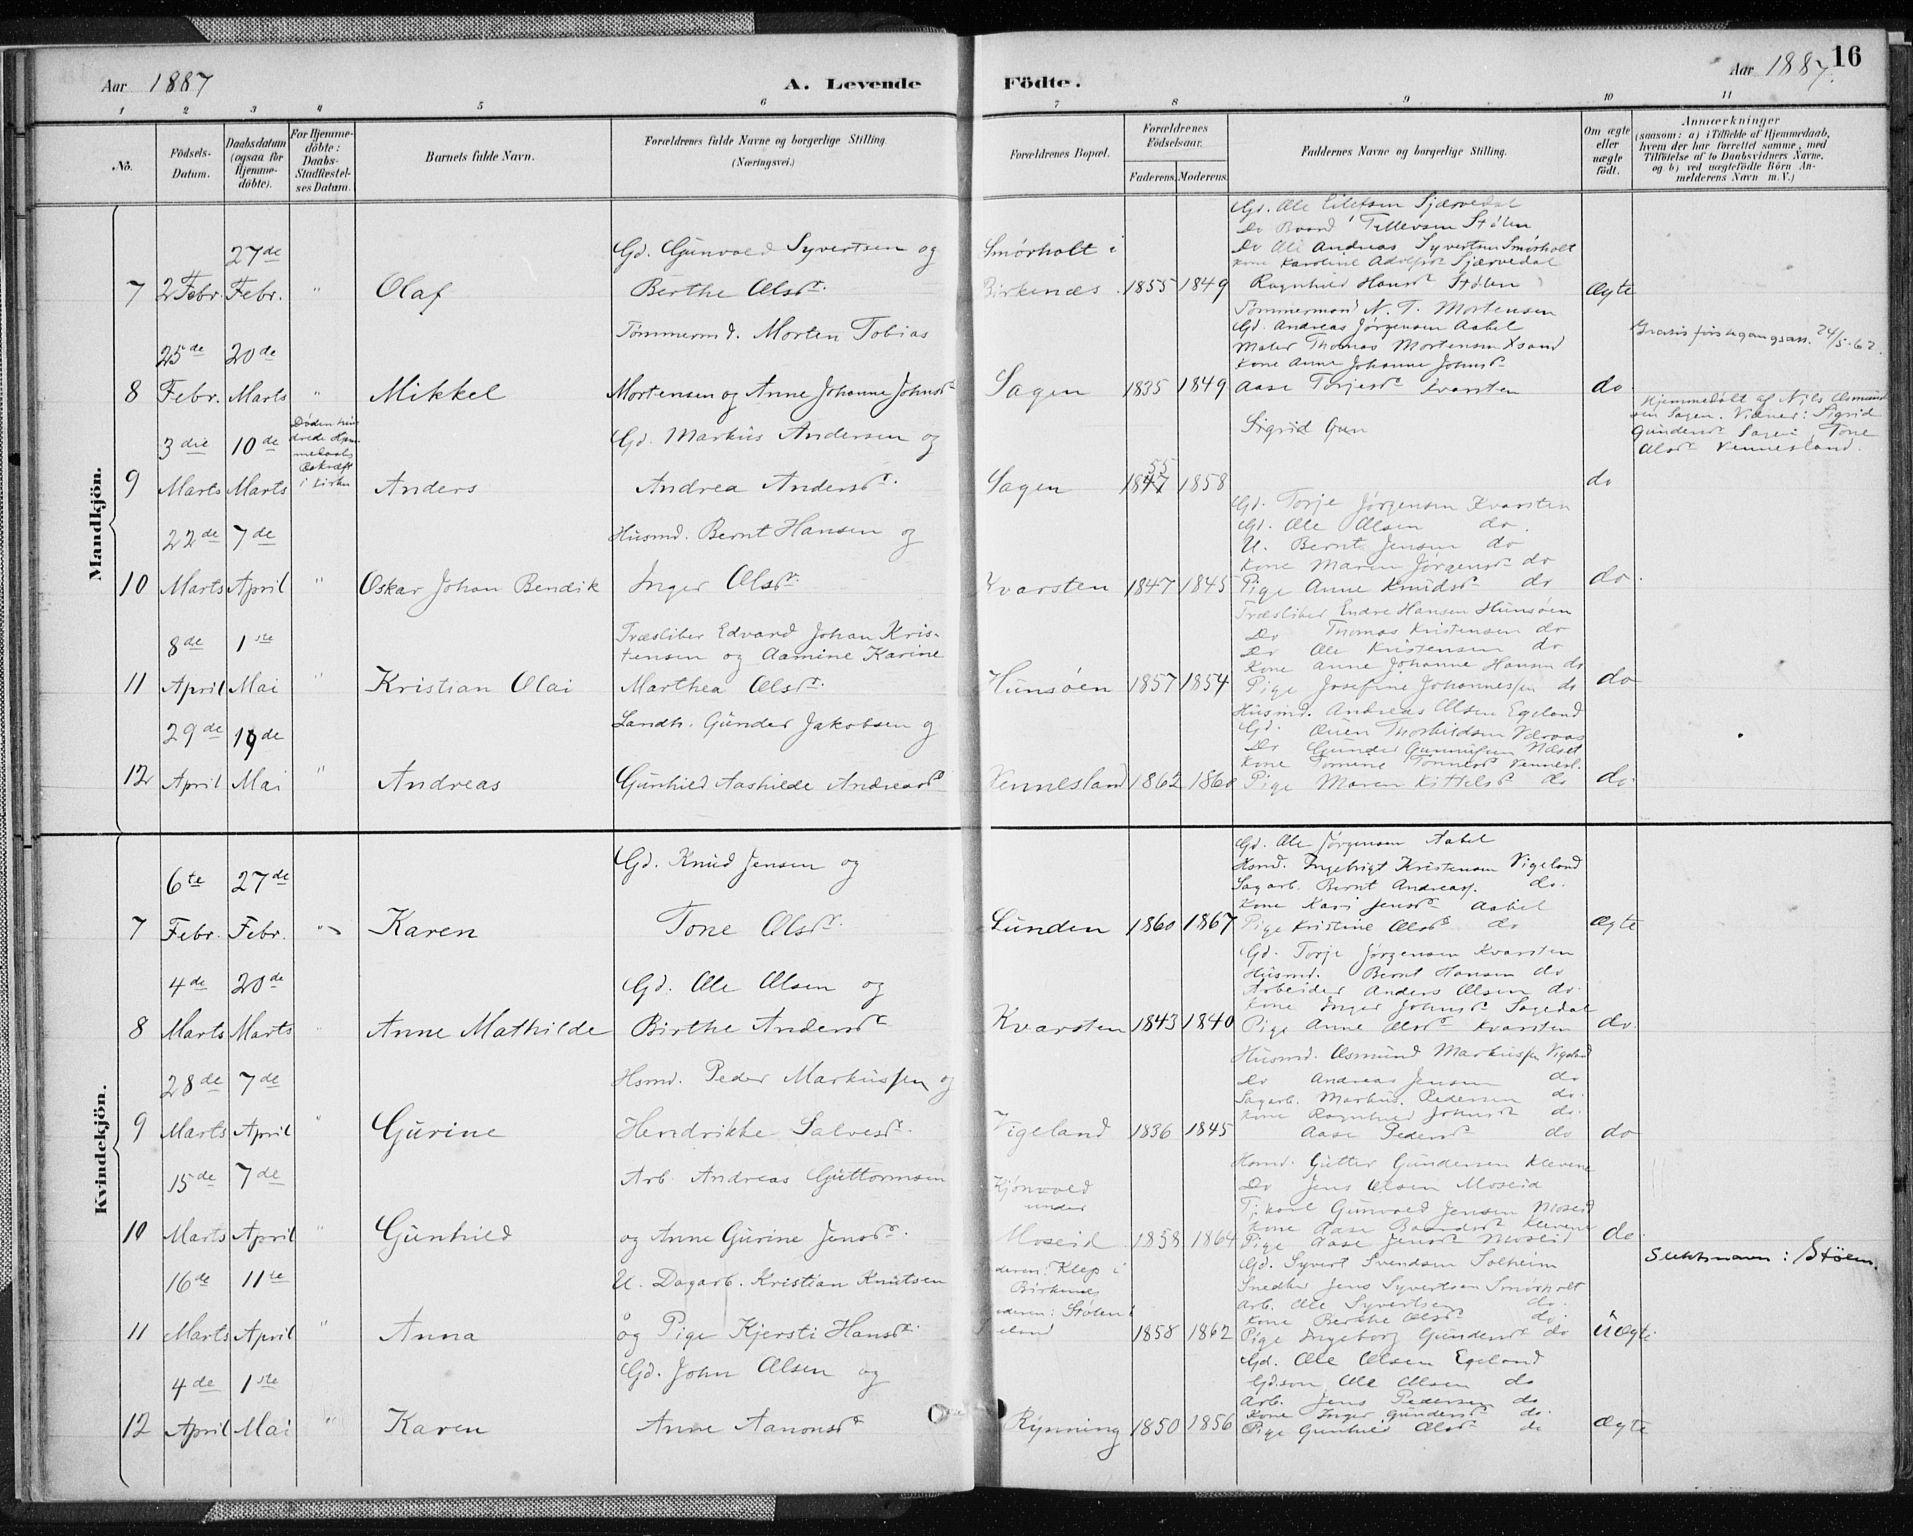 Aar 1887 A. Levende Födte. Aar 1887. 16
1 2 3 4 5 6 7 8 9 10 11
No.
Födsels-Datum.
Daabsdatum (ogsaa for Hjemme-döbte).
For Hjemme-döbte: Daabs-Stadfæstel-ses Datum.
Barnets fulde Navn.
Forældrenes fulde Navne og borgerlige Stilling
(Næringsvei.)
Forældrenes Bopæl.
Forældrenes Födselsaar.
Faderens. Moderens.
Faddernes Navne og borgerlige Stilling.
Om ægte eller uægte födt.
Anmærkninger
(saasom: a) i Tilfælde af Hjemmedaab,
hvem der har forrettet samme, med
Tilföielse af to Daabsvidners Navne,
og b) ved uægtefödte Börn An-
melderens Navn m.V.)
Mandkjön.
7 2 Febr. 27de Febr. " Olaf
Gd. Gunvold Syvertsen og
Birthe Olsdr.
Smørholt i
Birkenæs. 1855 1849
Gd. Ole Eilefsen Sjærvedal
Do Baard Tellevsen Stølen
Do Ole Andreas Syvertsen Smørholt
Kone Karoline Adolfsdr Sjærvedal
Ragnhild Hansdr Stølen
ægte
8 25de Febr. 20de Marts " Mikkel
Tømmermd. Morten Tobias
Mortensen og Anne Johanne Johnsdr
Sagen 1835 1849
Tømmermand N. T. Mortensen
Gd. Andreas Jørgensen Aabel
Maler Thomas Mortensen Xsand
Kone Anne Johanne Johnsdr
Aase Torjesdr Kvarsten
do
Gratis førstegangsatt. 24/5-62.
9 3die Marts 10de Marts
Døden hin
drede Hjem
medaabs
i Kirken
Anders
Gd. Markus Andersen og
Andrea Andersdr.
Sagen 1847 55 1858
Sigrid Gun
do
Hjemmedøbt af Nils Osmund
sen Sagen. Vidner: Sigrid
Gundersdr Sagen, Tone
Olsdr Vennesland.
10 22de Marts 7de April " Oskar Johan Bendik
Husmd. Bernt Hansen og
Inger Olsdr.
Kvarsten 1847 1845
Gd. Torje Jørgensen Kvarsten
Gd. Ole Olsen do.
U. Bernt Jensen do
Kone Maren Jørgensdr do
Pige Anne Knudsdr do
do.
11 8de April 1ste Mai " Kristian Olai
Træsliber Edvard Johan Kris-
tensen og Aamine Karine
Marthea Olsdr.
Hunsøen 1857 1854
Træsliber Endre Hansen Hunsøen
Do Thomas Kristensen do
Do Ole Kristensen do
Kone Anne Johanne Hansen do
Pige Josefine Johannessen do
do
12 29de April 19de Mai " Andreas
Landh. Gunder Jakobsen og
Gunhild Aashilde Andreasdr
Vennesland 1862 1860
Husmd. Andreas Olsen Egeland
Gd. Ouen ThorkildsenVæraas
Do Gunder Gunnufsen Næset
Kone Tomine Tommesdr Vennesl.
Pige Maren Kittelsdr do
do.
Kvindekjön.
7 6te Febr. 27de Febr. " Karen
Gd. Knud Jensen og
Tone Olsdr.
Lunden 1860 1867
Gd. Ole Jørgensen Aabel
Hsmd. Ingebrigt Kristensen Vigeland
Sagarb. Bernt Andreass. do.
Kone Kari Jensdr Aabel
Pige Kristine Olsdr do
ægte
8 4de Marts 20de Marts " Anne Mathilde
Gd. Ole Olsen og
Birthe Andersdr
Kvarsten 1843 1840
Gd. Torje Jørgensen Kvarsten
Husmd. Bernt Hansen do
Arbeider Anders Olsen do.
Kone Inger Johnsdr Sagedal
Pige Anne Olsdr Kvarsten
do.
9 28de Marts 7de April " Gurine
Hsmd. Peder Markussen og
Hendrikke Salvesdr.
Vigeland 1836 1845
Husmd. Osmund Markussen Vigeland
Do Andreas Jensen do
Sagarb. Markus Pedersen do.
Kone Ragnhild Johnsdr do.
Aase Pedersdr do
do
10 15de Marts 7de April " Gunhild
Arb. Andreas Guttormsen
og Anne Gurine Jensdr.
Kjønvold
under
Moseid 1858 1864
Hsmd. Gutter Gundersen Klevene
Do Jens Olsen Moseid
Tj. karl Gunvald Jensen Moseid
Kone Aase Baardsdr Klevene
Pige Aase Jensdr Moseid
do.
11 16de Marts 11te April " Anna
U. Dagarb. Kristian Knutsen
og Pige Kjersti Hansdr.
deren: Klep i
Birkenes
ederen: Stølen i
eland
1858 1862
Gd. Syvert Svendsen Solheim
Snedker Jens Syvertsen Smørholt
Arb. Ole Syvertsen do.
Kone Berthe Olsdr do.
Pige Ingeborg Gundersdr do
Uægte
Slektsnavn: Støen.
12 4de April 1ste Mai " Karen
Gd. John Olsen og
Anne Aanonsdr
Rynning 1850 1856
Gd. Ole Olsen Egeland
Gdsøn Ole Olsen do
Arb. Jens Pedersen do
Kone Inger Gundersdr do.
Pige Gunhild Olsdr do
Ægte